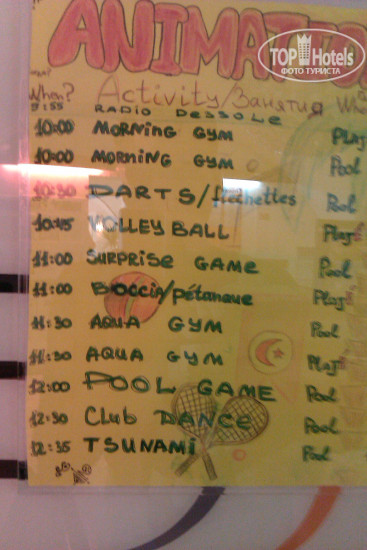 ANIMATIO
TOP Hotels
ФОТО ТУРИСТА
When? Activity/Занятия Whe
9:55 RADIO DESSOLE
10:00 MORNING GYM PLAJ
10:00 MORNING GYM Pool
10:30 DARTS/flechettes Pool
10:45 VOLLEY BALL Plaj
11:00 SURPRISE GAME Pool
11:00 BOCCIA/pétanque Plaj
11:30 AQUA GYM Pool
11:30 AQUA GYM Plaj
12:00 POOL GAME Pool
12:30 Club DANCE Pool
12:35 TSUNAMI Pool